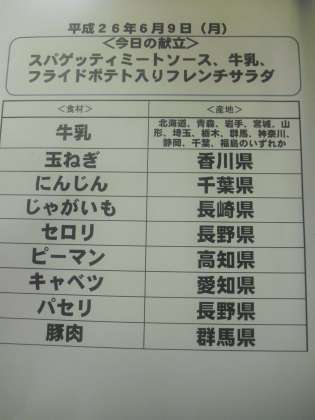 平成２６年６月９日（月）
＜今日の献立＞
スパゲッティミートソース、牛乳、
フライドポテト入りフレンチサラダ
＜食材＞ ＜産地＞
牛乳 北海道、青森、岩手、宮城、山
形、埼玉、栃木、群馬、神奈川、
静岡、千葉、福島のいずれか
玉ねぎ 香川県
にんじん 千葉県
じゃがいも 長崎県
セロリ 長野県
ピーマン 高知県
キャベツ 愛知県
パセリ 長野県
豚肉 群馬県